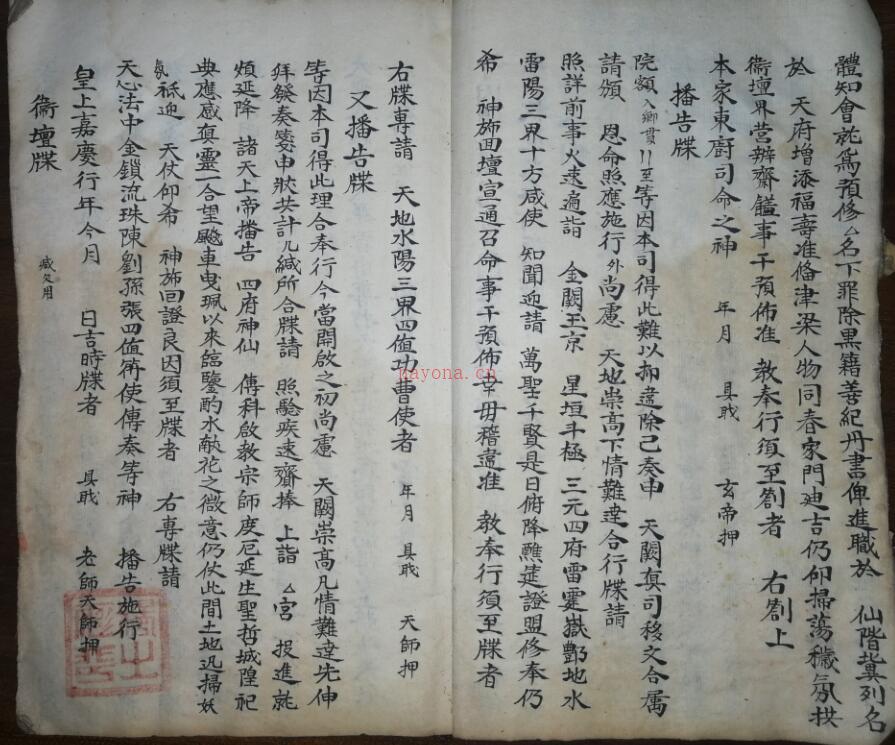 體知會說爲預修厶名下罪除黑籍善紀丹書俾進職於　仙階冀列名
於　天府增添福壽准俻津梁人物同春家門廸吉仍仰掃蕩穢氛
衛壇界营辦齋饈事干預佈准　教奉行須至劄者　右劄上
本家東厨司命之神　年　月　具戝　玄帝押
播告牒
院額入鄉貫至等因本司得此難以抑違除已奏申　天闕眞司移文合属
請頒　恩命照應施行外尚慮　天地崇高下情難達合行牒請
照詳前事火速遍詣　金闕玉京　星垣斗極　三元四府雷霆嶽酆地水
雷陽三界十方咸使　知聞迎請　萬聖千賢是日俯降醮筵證盟修奉仍
希　神旆回壇宣通召命事干預佈幸毋稽違准　教奉行須至牒者
右牒專請　天地水陽三界四值功曹使者　年月　具戝　天師押
又播告牒
等因本司得此理合奉行今當開啟之初尚慮　天闕崇高凡情難達先伸
拜發奏箋申狀共計几緘所合牒請　照驗疾速賷捧　上詣　厶宮　投進就
煩延降　諸天上帝播告　四府神仙　傳科啟教宗師度厄延生聖哲城隍祀
典應感眞靈一合望飈車曳珮以來臨鑒酌水献花之微意仍仗此間土地迅掃妖
氛祇迎　天仗仰希　神旆回證良因須至牒者　右專牒請
天心法中金鎖流珠陳劉孫張四值符使傳奏等神　播告施行
皇上嘉慶行年今月　日吉時牒者　具戝　老師天師押
衛壇牒
nayona.cn